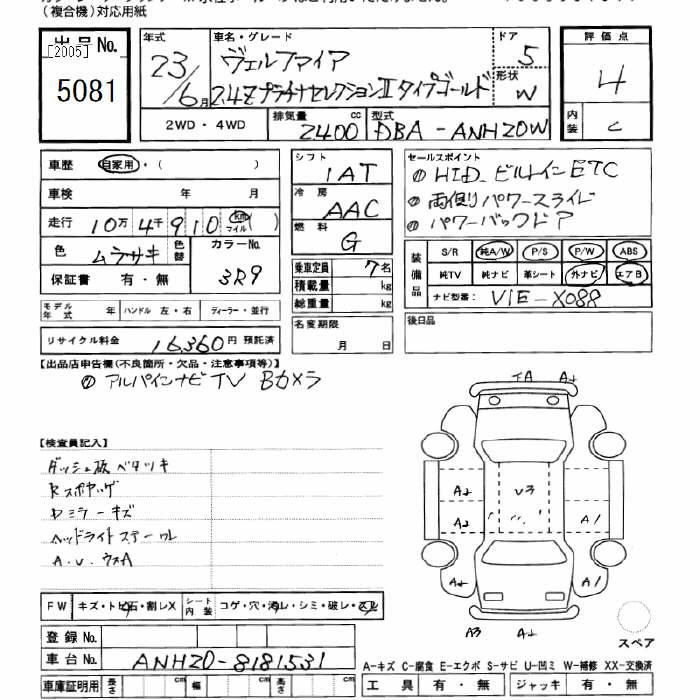 (複合機)対応用紙
出品No.
[2005]
5081
年式
23/6月
車名・グレード
ヴェルファイア
2.4Z プラチナセレクションⅡ タイプゴールド
ドア
5
形状
W
評価点
4
内装
C
2WD・4WD
排気量
2400 cc
型式
DBA-ANH20W
車歴 自家用・( )
車検 年 月
走行 10万4千910 km マイル( )
色 ムラサキ 色替 カラーNo. 3R9
保証書 有・無
モデル年式 年 ハンドル 左・右 ディーラー・並行
リサイクル料金 16,360円 預託済
シフト
IAT
冷房
AAC
燃料
G
乗車定員 7名
積載量 kg
総重量 kg
名変期限
月 日
セールスポイント
① HID ビルトインETC
① 両側パワースライド
① パワーバックドア
装備品
S/R 純A/W P/S P/W ABS
純TV 純ナビ 革シート 外ナビ エアB
ナビ型番: VIE-X088
後日品
【出品店申告欄(不良箇所・欠品・注意事項等)】
① アルパインナビTV Bカメラ
【検査員記入】
ダッシュ板ベタツキ
ヘッドライトスチール
FW キズ・トビ石・割レX シート内装 コゲ・穴・汚レ・シミ・破レ・スレ
登録No.
車台No. ANH20-8181531
車庫証明用 長さ cm 幅 cm 高さ cm
A2
A2
V3
A2
A1
A2
A1
A3 A2
スペア
A-キズ C-腐食 E-エクボ S-サビ U-凹ミ W-補修 XX-交換済
工具 有・無 ジャッキ 有・無